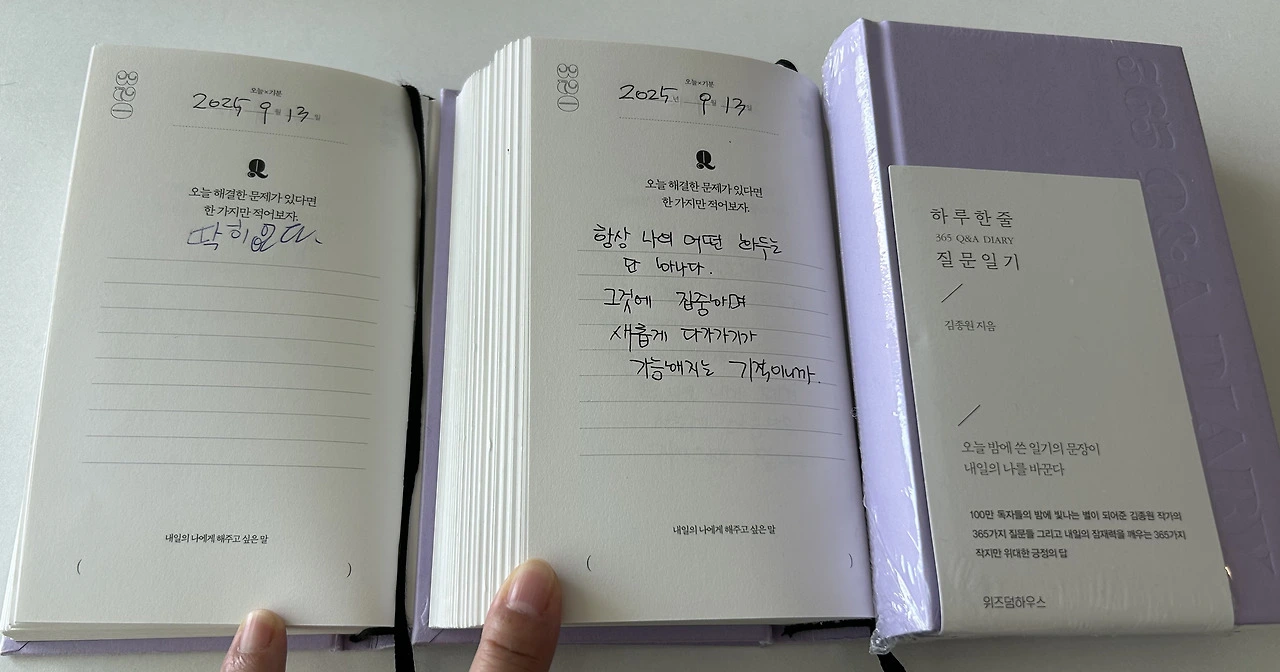 오늘×기분
2025 9월 13일
Q
오늘 해결한 문제가 있다면
한 가지만 적어보자.
딱히 없다.
내일의 나에게 해주고 싶은 말
( )
오늘×기분
2025년 9월 13일
Q
오늘 해결한 문제가 있다면
한 가지만 적어보자.
항상 나의 어떤 화두는
단 하나다.
그것에 집중하며
새롭게 다가가기가
가능해지는 기적이니까.
내일의 나에게 해주고 싶은 말
( )
365 Q&A DIARY
하루 한 줄
365 Q&A DIARY
질문 일기
김종원 지음
오늘 밤에 쓴 일기의 문장이
내일의 나를 바꾼다
100만 독자들의 밤에 빛나는 별이 되어준 김종원 작가의
365가지 질문들 그리고 내일의 잠재력을 깨우는 365가지
작지만 위대한 긍정의 답
위즈덤하우스